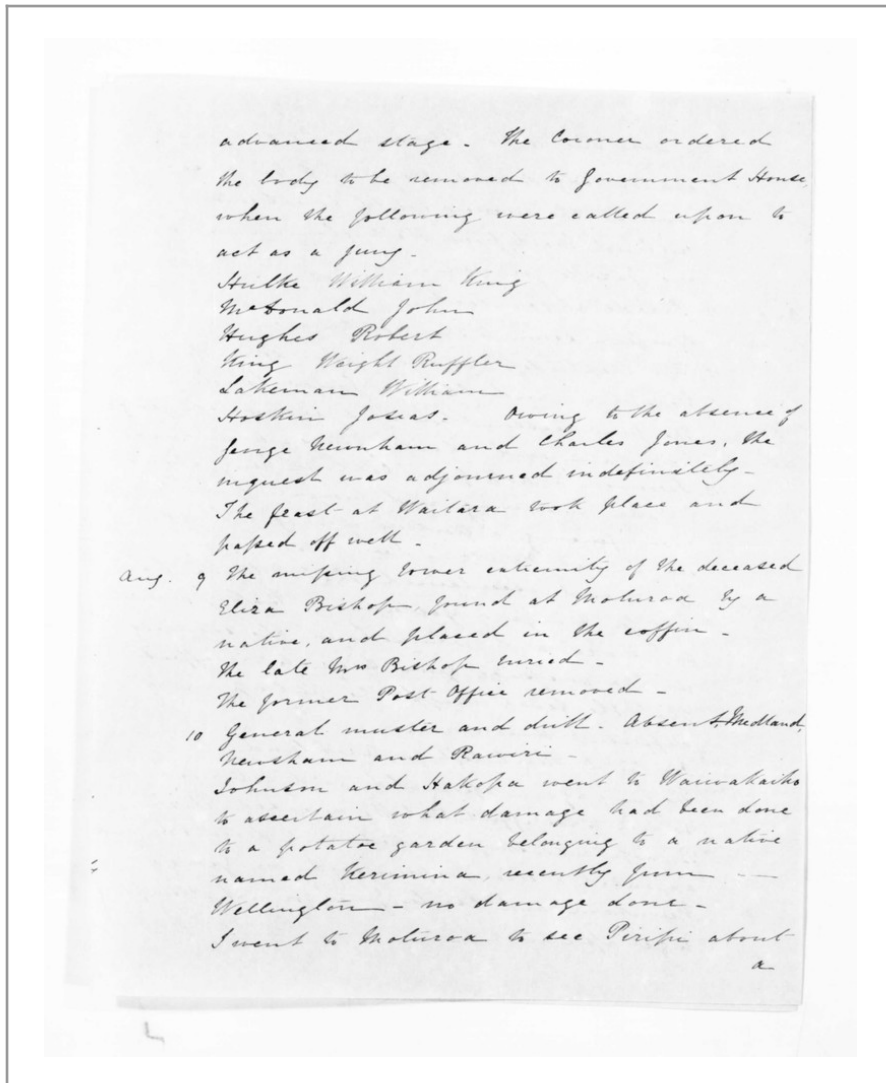 advanced stage. The Coroner ordered
the body to be removed to Government House,
when the following were called upon to
act as a jury.
Hulke William King
McDonald John
Hughes Robert
King Weight Ruffler
Lakeman William
Hoskin Josias. Owing to the absence of
George Newnham and Charles Jones, the
inquest was adjourned indefinitely.
The feast at Waitara took place and
passed off well.
Aug. 9 The missing lower extremity of the deceased
Eliza Bishop, found at Moturoa by a
native, and placed in the coffin.
The late Mrs Bishop buried.
The former Post Office removed.
10 General muster and drill. Absent, Medland,
Newsham and Rawiri.
Johnson and Hakopa went to Waiwakaiho
to ascertain what damage had been done
to a potatoe garden belonging to a native
named Kerimina, recently from
Wellington - no damage done.
I went to Moturoa to see Piripi about
a